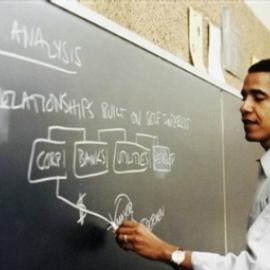 ANALYSIS
RELATIONSHIPS BUILT ON SELF INTEREST
CORP BANKS UTILITIES
$